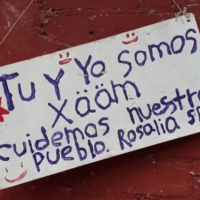 Tu y Yo somos
Xääm
cuidemos nuestro
pueblo. Rosalia